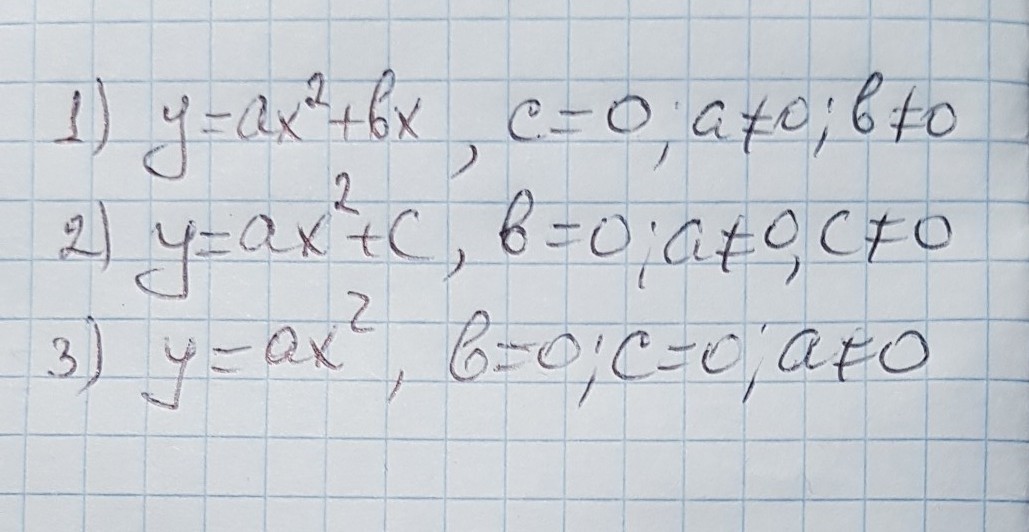 1) y=ax²+bx, c=0; a≠0; b≠0
2) y=ax²+c, b=0; a≠0, c≠0
3) y=ax², b=0; c=0; a≠0